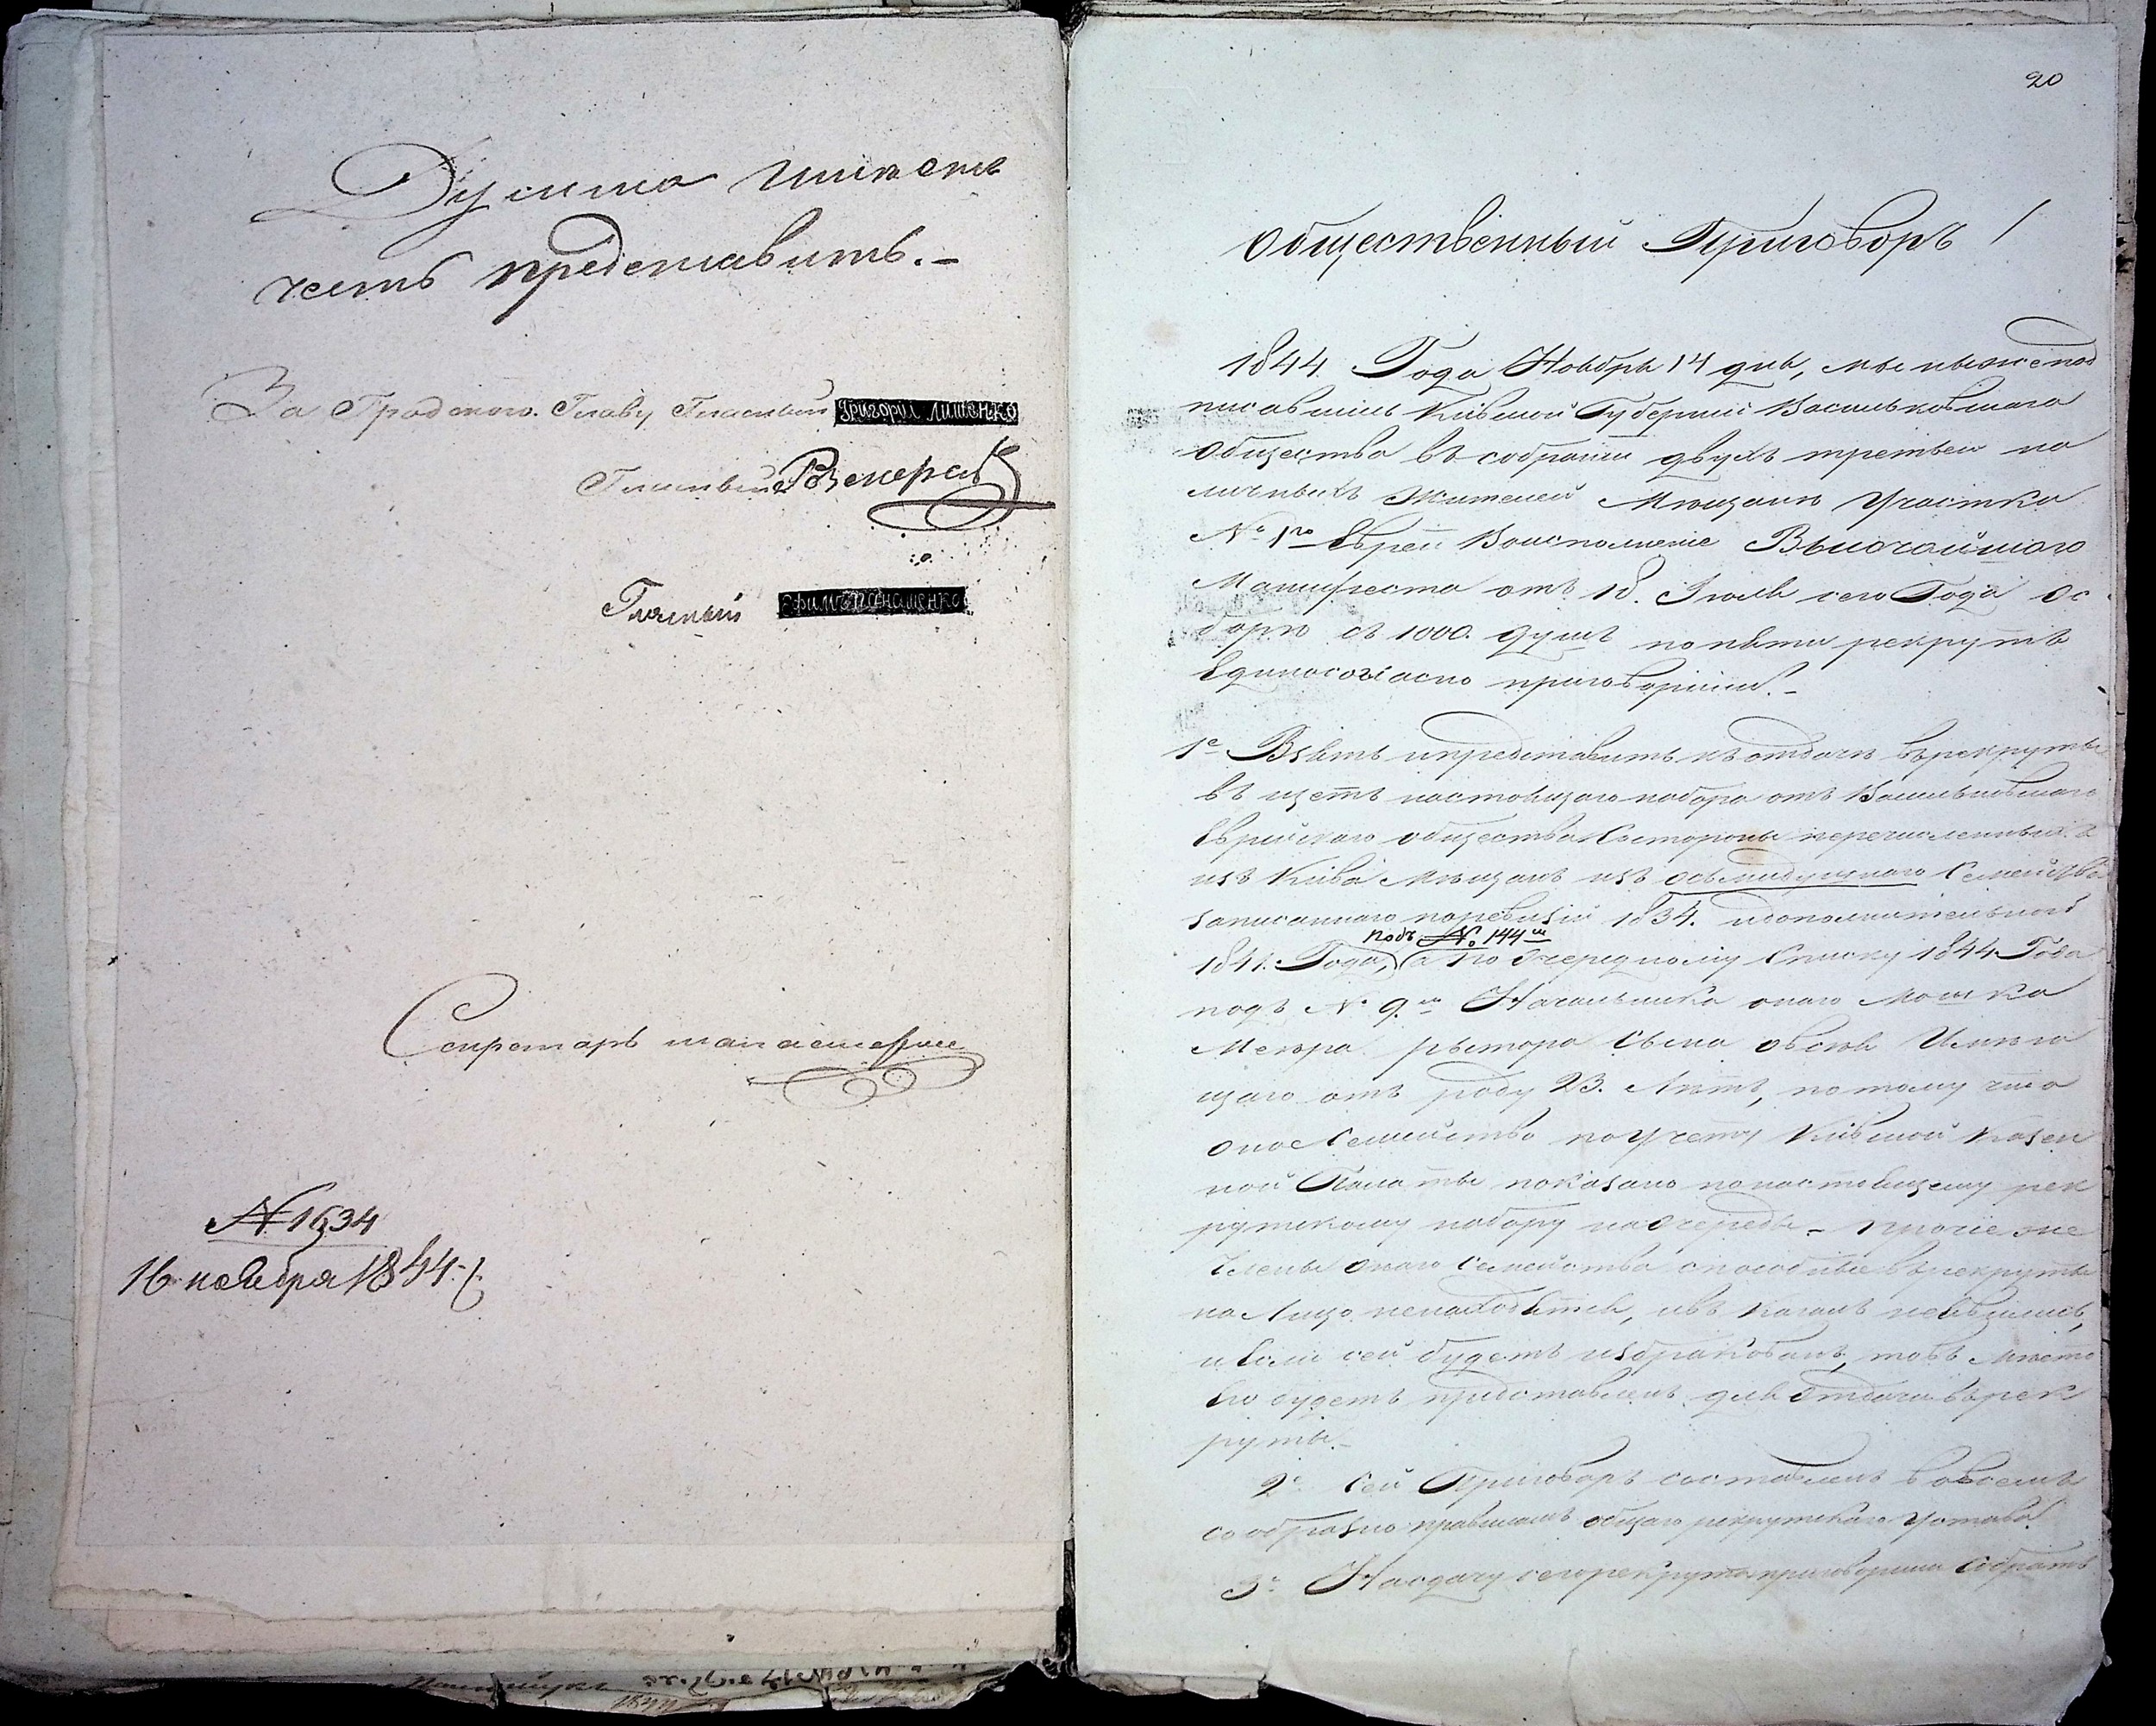 Думма имѣетъ
честь представить.-
За Градскаго Главу Гласный Григорій Лишенко
Гласный
Гласный Ефимъ Панашенко
Секретарь
№ 1634
16 ноября 1844.
20
Общественный Приговоръ
1844 Года Ноября 14 дня, мы нижепод
писавшіесь Кіевской Губерніи Васильковскаго
общества въ собраніи двухъ третьей на
личныхъ Жителей Мѣщанъ Участка
№ 1го Евреи Воисполненіе Высочайшаго
Манифеста отъ 18 Іюля сего Года о с
борѣ съ 1000 душъ по пяти рекрутъ
Единогласно приговорили.-
1е Взять и представить къ отдачѣ въ рекруты
въ щетъ настоящаго набора отъ Васильковскаго
Еврейскаго общества Состороны перечисленныхъ
изъ Кіева Мѣщанъ изъ осьмидушнаго Семейства
записаннаго по ревизіи 1834. и дополнительной
подъ № 144м
1841 Года, (а по Очередному Списку 1844 Года
подъ № 9м Начальника онаго Мошка
Меера сына Овсѣя Имѣю
щаго отъ роду 23. Лѣтъ, потому что
оное Семейство по Учету Кіевской Казен
ной Палаты показано по настоящему рек
рутскому набору на Очереди - прочіе же
Члены Онаго Семейства способные въ рекруты
на Лицо ненаходятся,
и Если сей будетъ избракованъ, то въ Мѣсто
Его будетъ представленъ для Отдачи въ рек
руты.-
2е Сей Приговоръ составленъ во всемъ
сообразно правиламъ общаго рекрутскаго Устава.
3е На сдачу сего рекрута приговорили Собрать